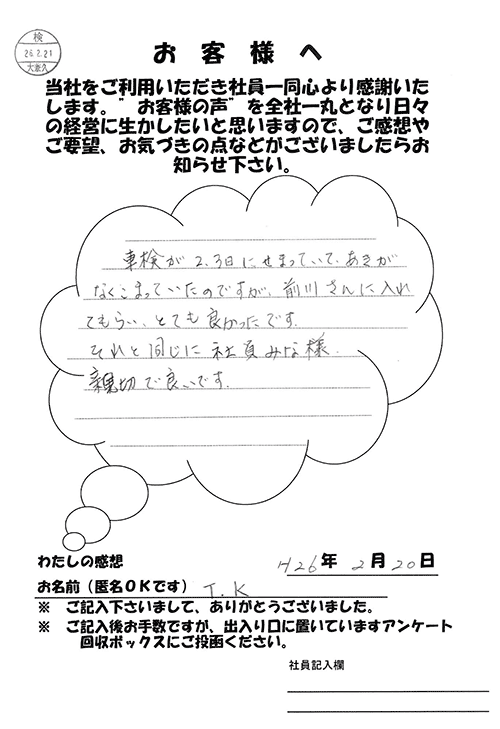 検
26.2.21
大喜久
お客様へ
当社をご利用いただき社員一同心より感謝いた
します。"お客様の声"を全社一丸となり日々
の経営に生かしたいと思いますので、ご感想や
ご要望、お気づきの点などがございましたらお
知らせ下さい。
車検が2,3日にせまっていて、あきが
なくこまっていたのですが、前川さんに入れ
てもらい、とても良かったです。
それと同じに社員みな様
親切で良いです。
わたしの感想
H26年 2月20日
お名前（匿名OKです） T.K
※ ご記入下さいまして、ありがとうございました。
※ ご記入後お手数ですが、出入り口に置いていますアンケート
回収ボックスにご投函ください。
社員記入欄